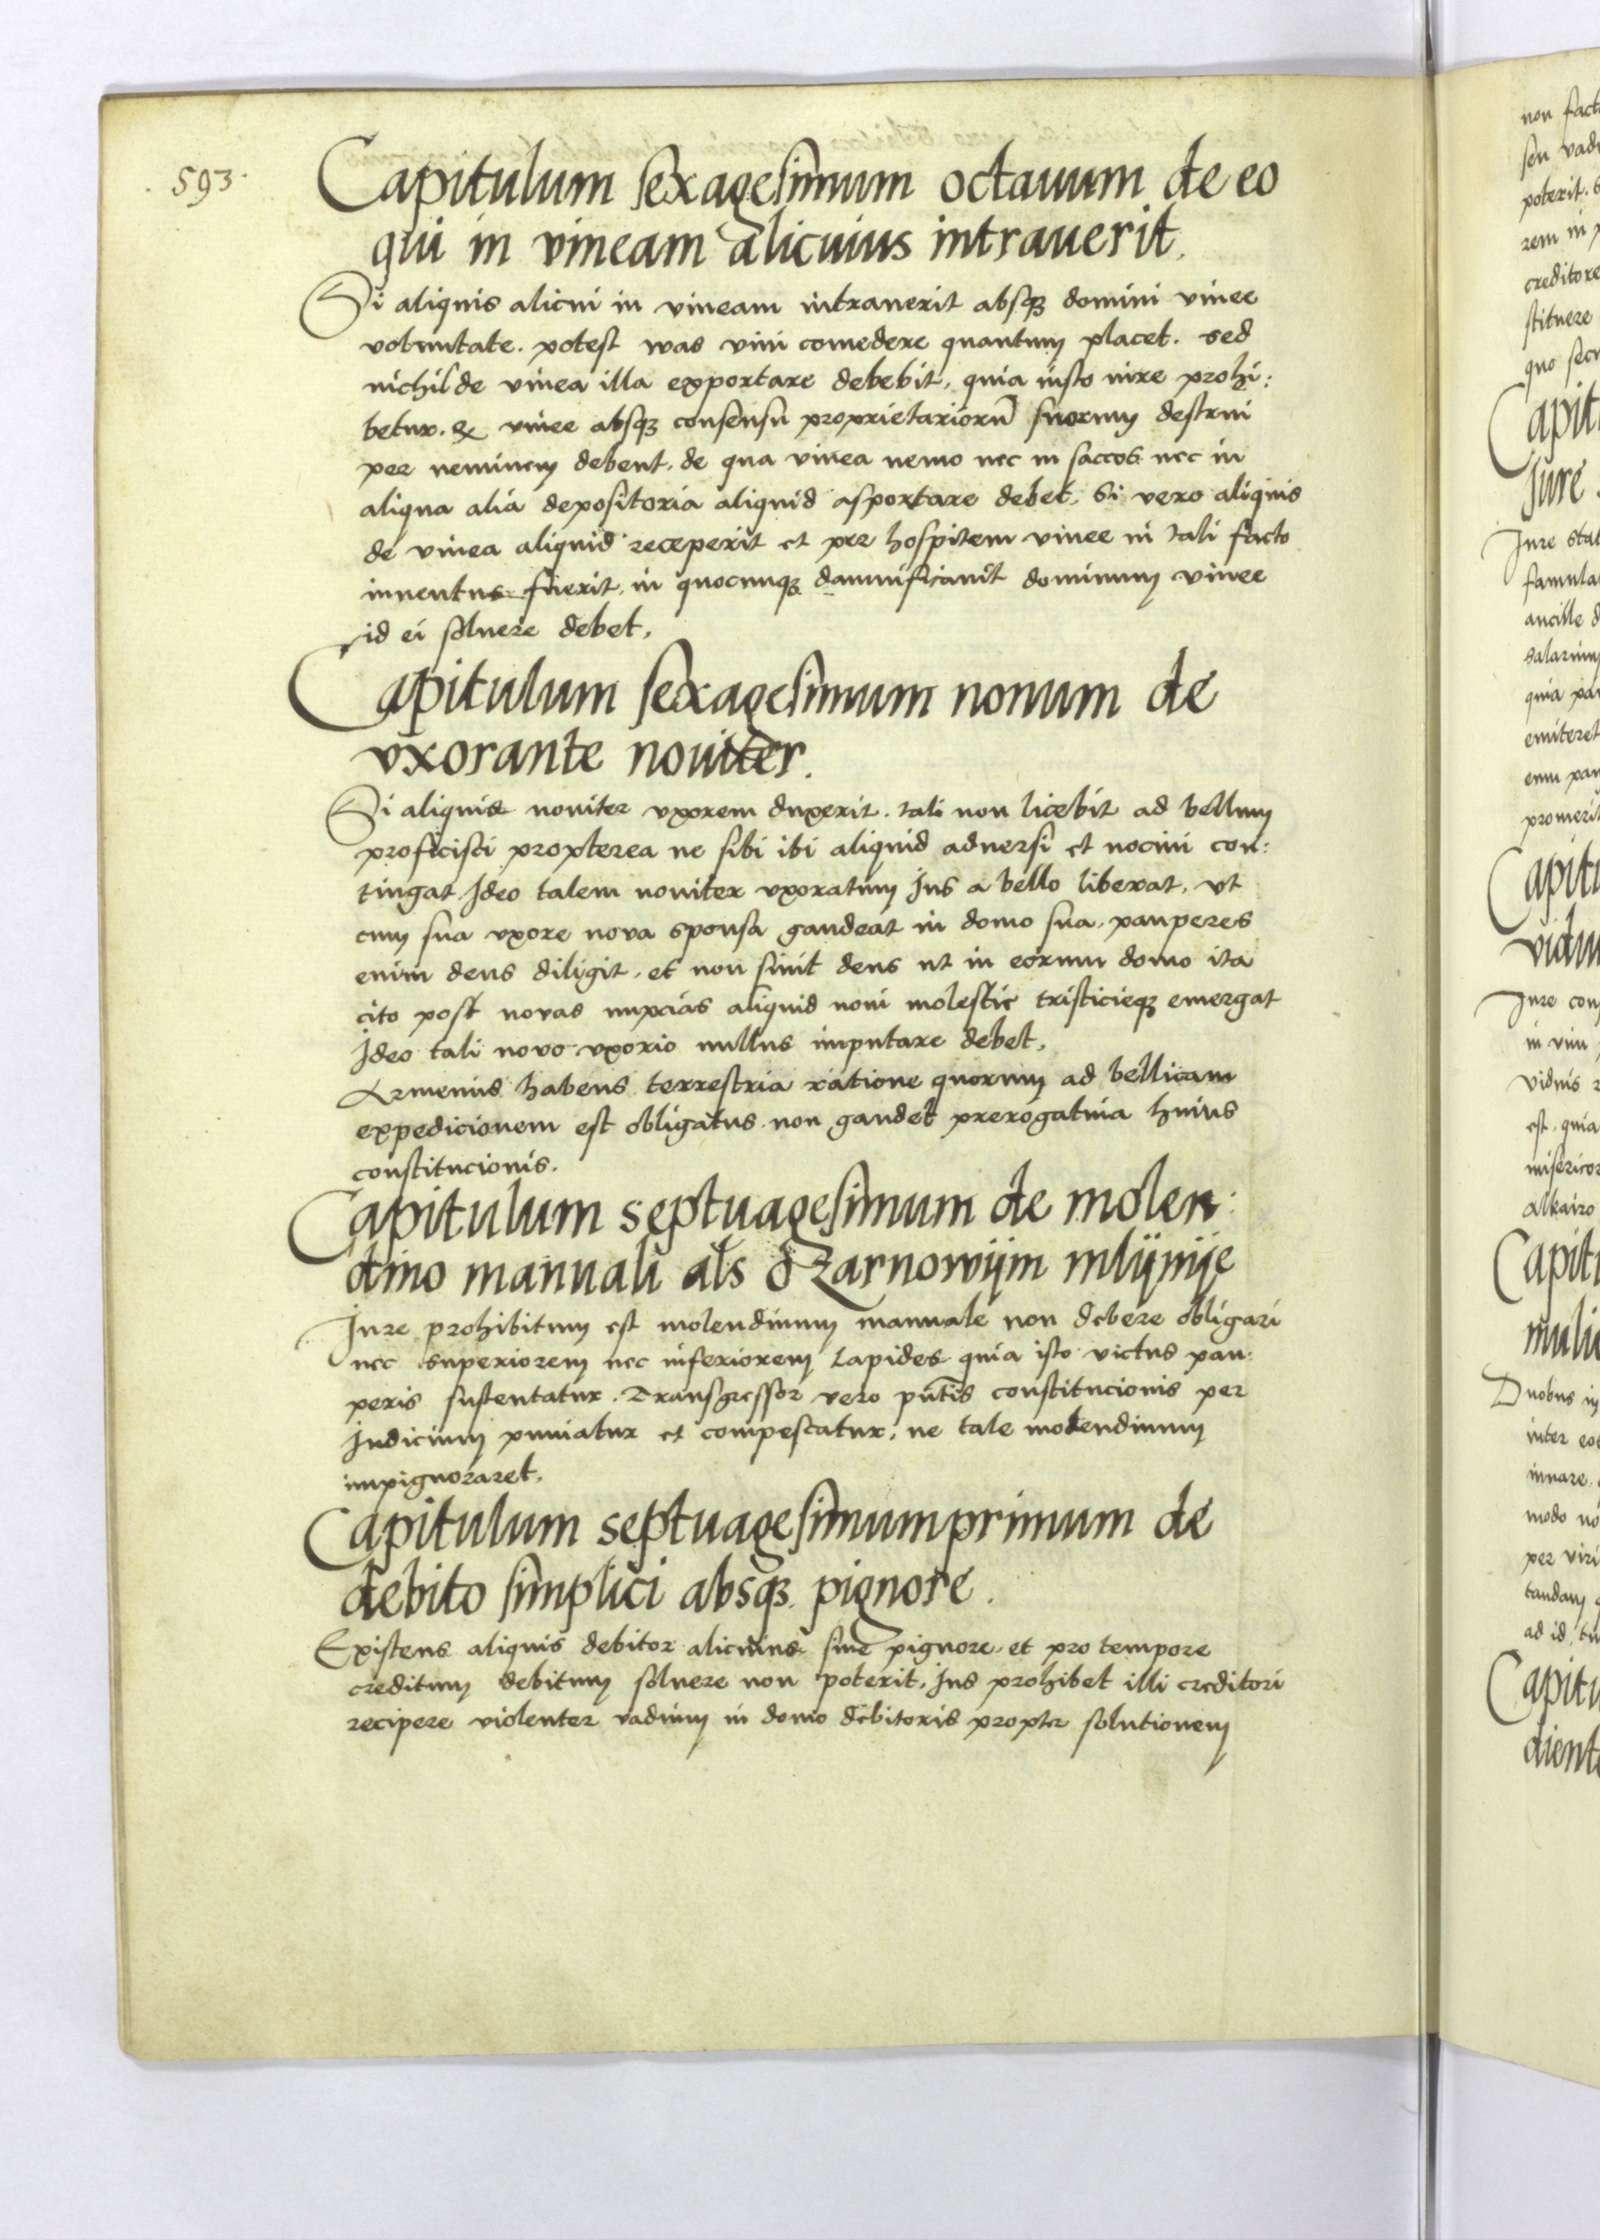 593
Capitulum sexagesimum octauum de eo
qui in vineam alicuius intrauerit.
Si aliquis alicui in vineam intrauerit absqz domini vinee
voluntate. potest was vini comedere quantum placet. sed
nichil de vinea illa exportare debebit, quia iusto iure prohi:
betur. & vinee absqz consensu proprietarioru suorum destrui
per neminem debent, de qua vinea nemo nec in saccos nec in
aliqua alia depositoria aliquid asportare debet, Si vero aliquis
de vinea aliquid receperit et per hospitem vinee in tali facto
inuentus fuerit, in quocunqz damnificauit dominum vinee
id ei soluere debet,
Capitulum sexagesimum nonum de
vxorante nouiter.
Si aliquis nouiter vxorem duxerit. tali non licebit ad bellum
proficisci propterea ne sibi ibi aliquid aduersi et nociui con:
tingat Ideo talem nouiter vxoratum Ius a bello liberat, vt
cum sua vxore nova sponsa gaudeat in domo sua, pauperes
enim deus diligit, et non sinit deus ut in eorum domo ita
cito post novas nupcias aliquid noui molestie tristicieqz emergat
Ideo tali novo vxorio nullus imputare debet,
Armenus habens terrestria ratione quorum ad bellicam
expedicionem est obligatus non gaudet prerogatiua huius
constitucionis.
Capitulum septuagesimum de molen:
dino manuali als o Zarnowijm mlijnije
Iure prohibitum est molendinum manuale non debere obligari
nec superiorem nec inferiorem Lapides quia isto victus pau:
peris sustentatur. Transgressor vero pntis constitucionis per
Iudicium puniatur et compescatur, ne tale molendinum
impignoraret,
Capitulum septuagesimumprimum de
debito simplici absqz pignore.
Existens aliquis debitor alicuius sine pignore, et pro tempore
creditum debitum soluere non poterit, Ius prohibet illi creditori
recipere violenter vadium in domo debitoris propter solutionem
non fact
poterit.
rem in
creditore
stituere
quo secu
Capit
Jure
Iure stat
ancille d
salarium
quia
emiteret
promerit
Capitu
vidu
Iure con
vidnis
est quia
misericor
Capit
mulie
Duobus in
inter eos
modo no
per viri
ad id tu
Capitu
dient